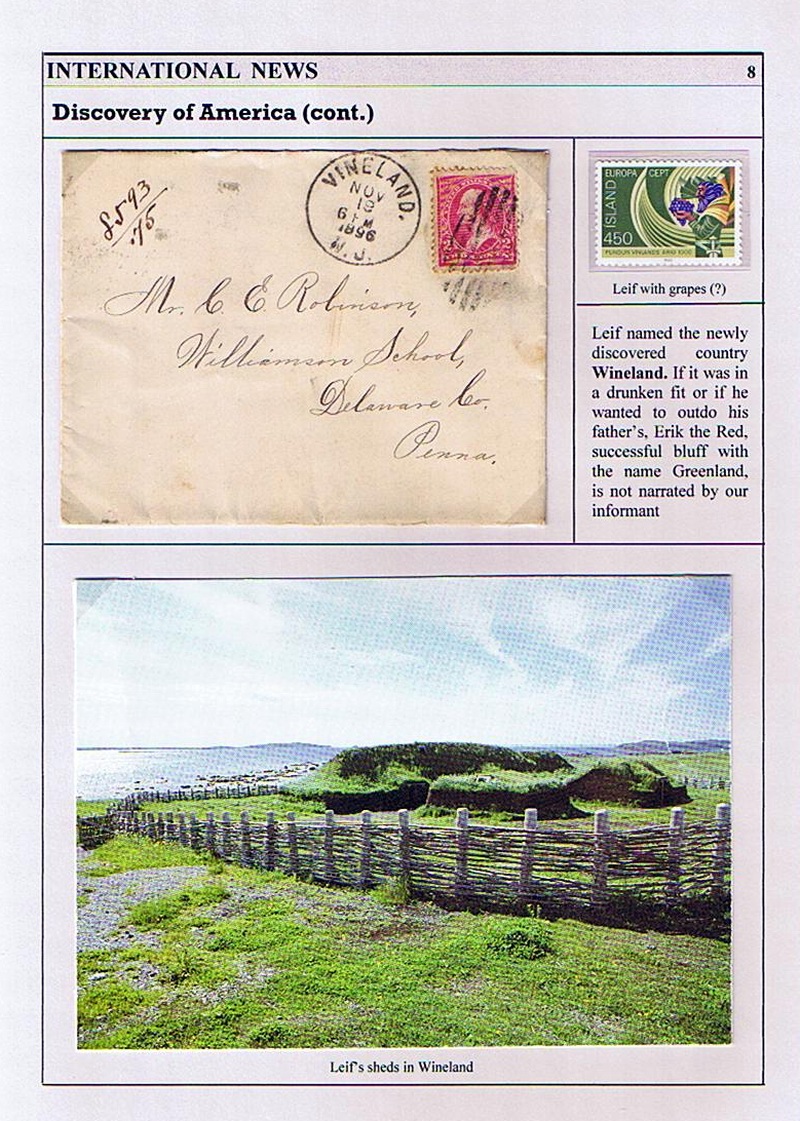 INTERNATIONAL NEWS 8
Discovery of America (cont.)
8593
/75
VINELAND.
NOV
19
6 PM
1896
N.J.
Mr. C. E. Robinson,
Williamson School,
Delaware Co.
Penna.
EUROPA CEPT
ÍSLAND
450
FUNDUR VINLANDS ÁRIÐ 1000
Leif with grapes (?)
Leif named the newly
discovered country
Wineland. If it was in
a drunken fit or if he
wanted to outdo his
father's, Erik the Red,
successful bluff with
the name Greenland,
is not narrated by our
informant
Leif's sheds in Wineland